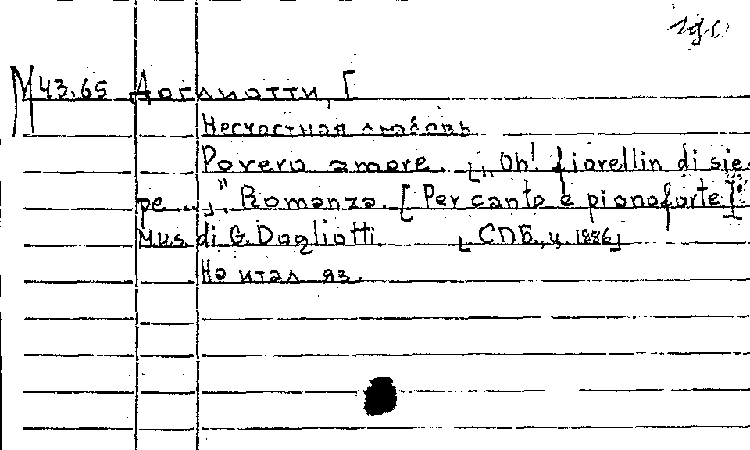 М 43.65 Даглиотти, [
Несчастная любовь
Povero amore. [„Oh! fiorellin di sie-
pe...]". Romanza. [Per canto e pianoforte].
Mus. di G. Dagliotti. [СПБ., ц. 1886]
На итал. яз.